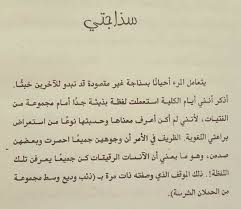 سذاجتي
يتعامل المرء أحيانًا بسذاجة غير مقصودة قد تبدو للآخرين خبثًا.
أذكر أنني أيام الكلية استعملت لفظة بذيئة جدًا أمام مجموعة من
الفتيات، لأنني لم أكن أعرف معناها وحسبتها نوعًا من استعراض
براعتي اللغوية. الظريف في الأمر أن وجوههن جميعًا احمرت وبعضهن
صدمن، وهو ما يعني أن الآنسات الرقيقات كن جميعًا يعرفن تلك
اللفظة!. ذلك الموقف الذي وصفته ذات مرة بـ (ذئب وديع وسط مجموعة
من الحملان الشرسة).